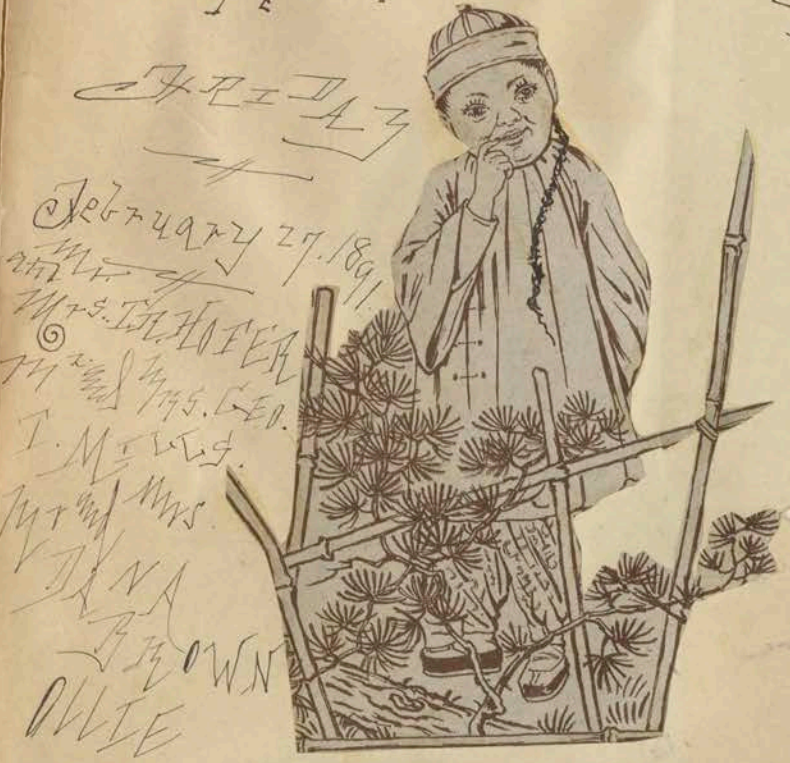 FRIDAY
February 27. 1891
Mr.
and
Mrs. T.R. HOFER
Mr. and Mrs. GEO.
T. MILLS.
Mr and Mrs.
DANA
BROWN
OLLIE